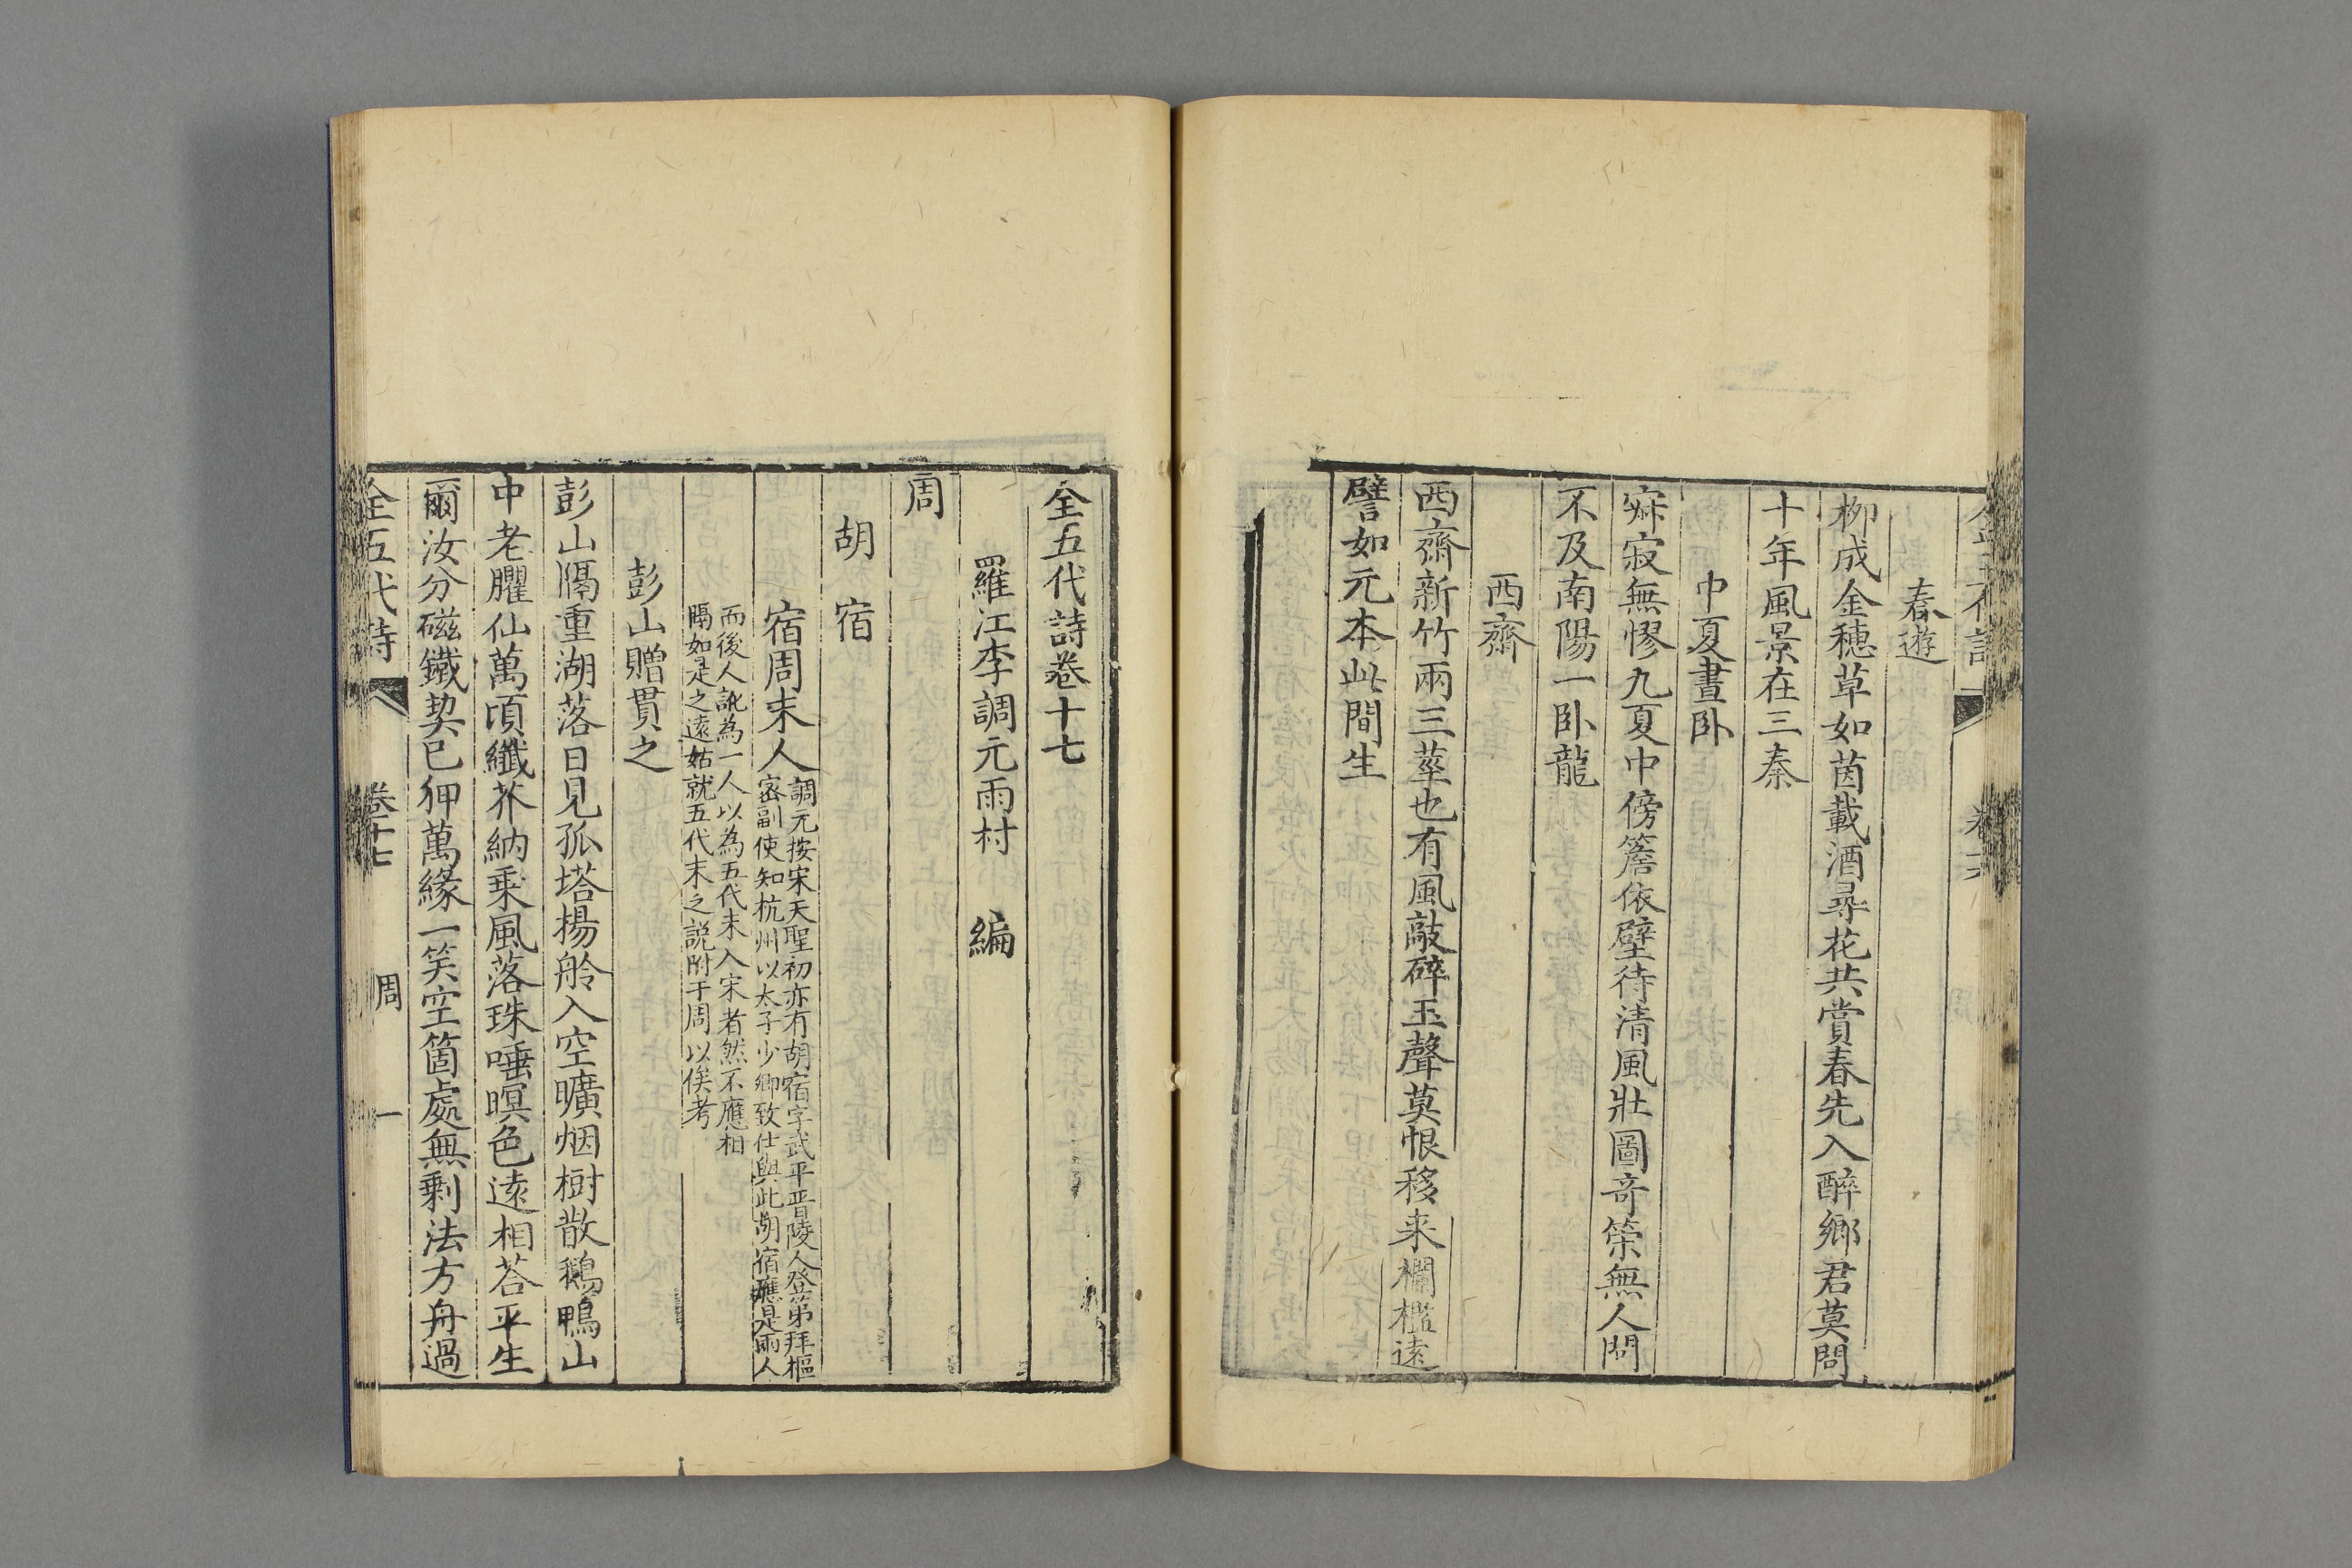 春遊
柳成金穗草如茵載酒尋花共賞春先入醉鄉君莫問
十年風景在三秦
中夏晝卧
㝥寂無憀九夏中傍簷依壁待清風壯圖奇策無人問
不及南陽一卧龍
西齋
西齋新竹兩三莖也有風敲碎玉聲莫恨移来欄檻遠
譬如元本此間生
全五代詩卷十七
羅江李調元雨村 編
周
胡宿
宿周末人調元按宋天聖初亦有胡宿字武平晉陵人登第拜樞
密副使知杭州以太子少卿致仕與此胡宿應是兩人
而後人訛為一人以為五代末入宋者然不應相
隔如是之遠姑就五代末之説附于周以俟考
彭山贈貫之
彭山隔重湖落日見孤塔揚舲入空曠烟樹散鵝鴨山
中老臞仙萬頃纖芥納乘風落珠唾暝色遠相荅平生
爾汝分磁鐵契已狎萬緣一笑空箇處無剩法方舟過
全五代詩 卷十七 周 一